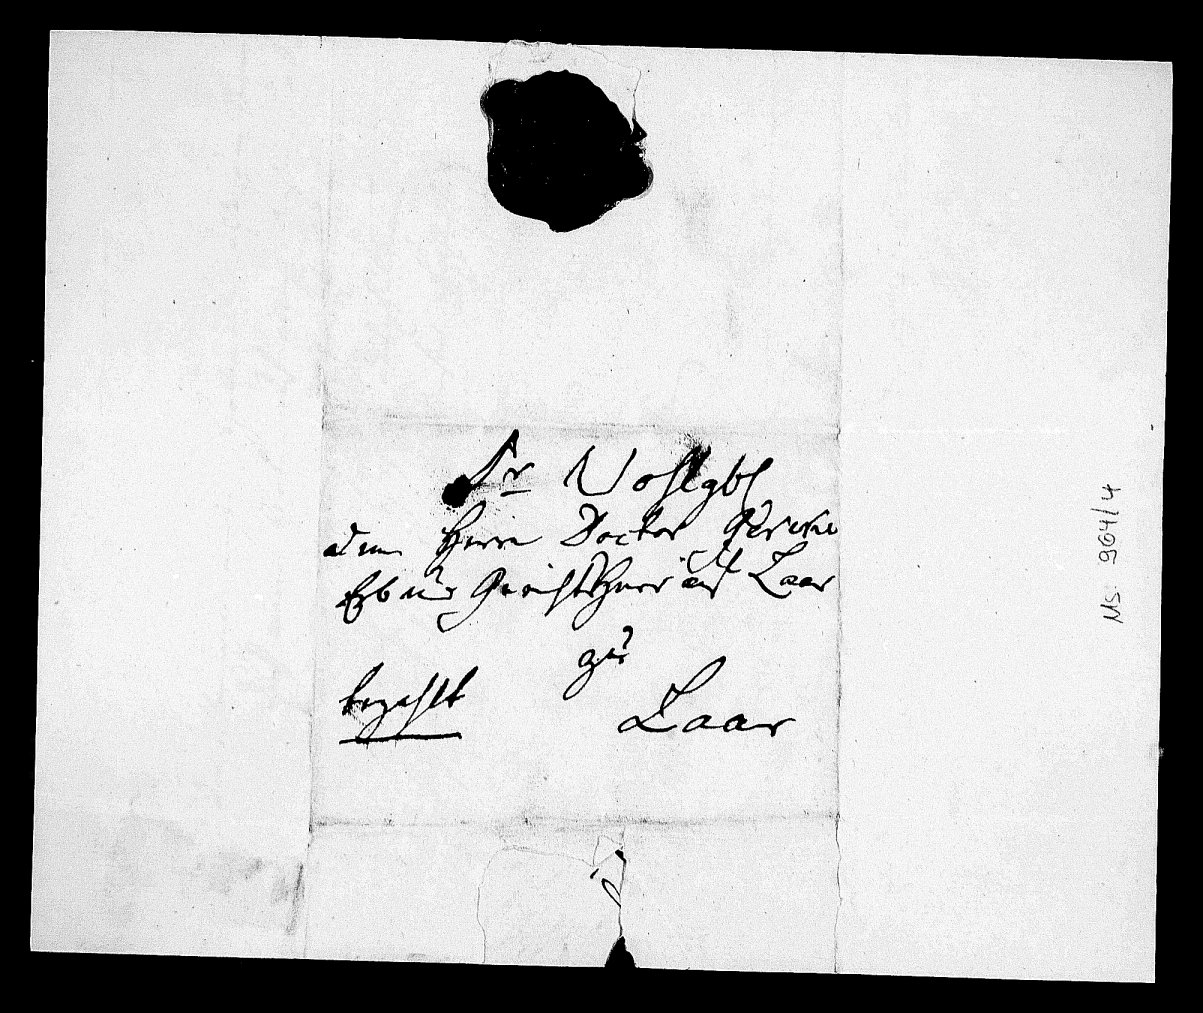 Sr Wohlgb
dem Herrn Doctor Gericke
Erb und Gerichtsherr auf Laar
zu
bezahlt Laar
Ms. 964/4